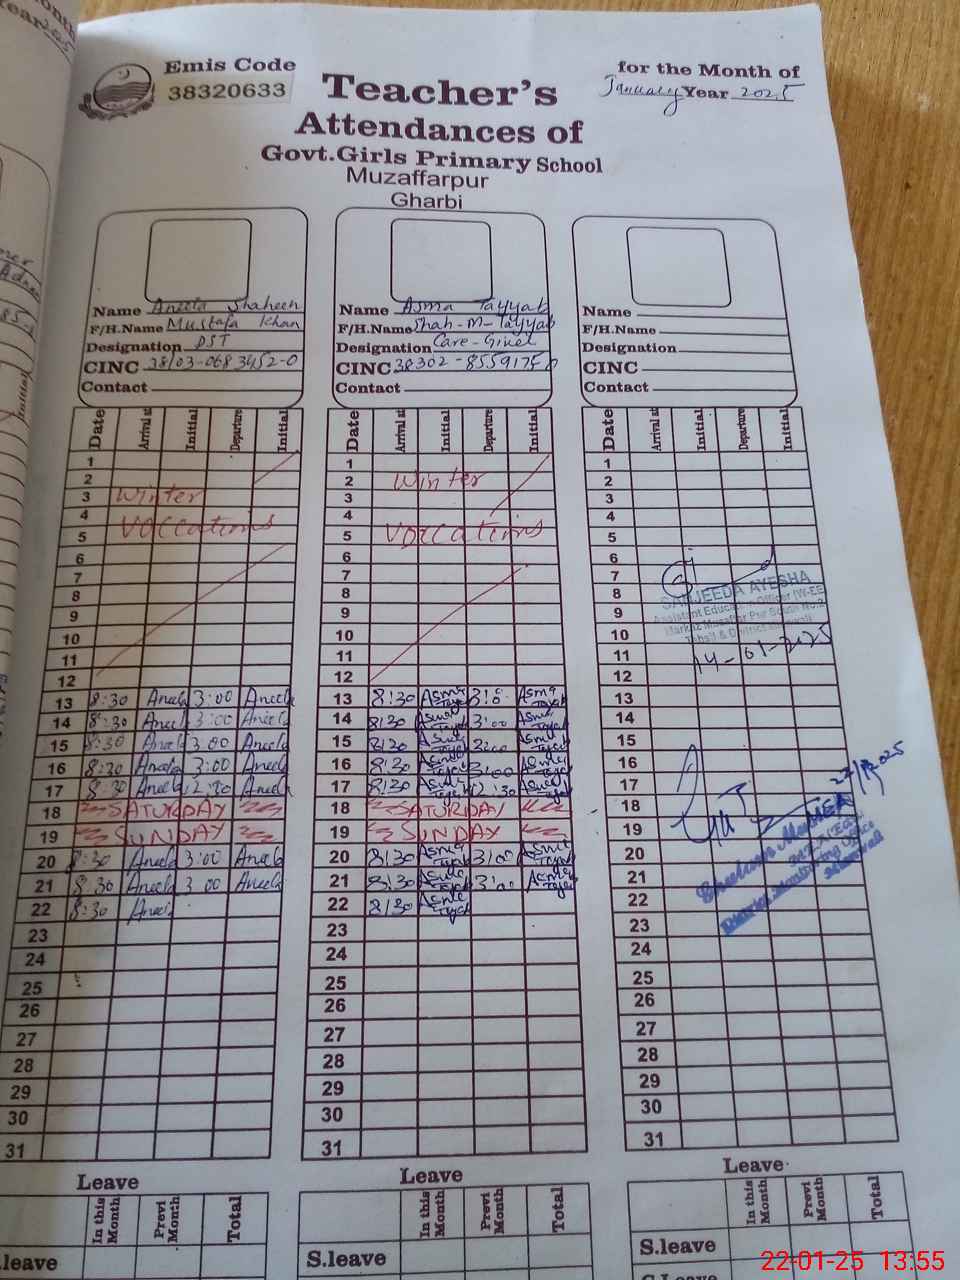 Emis Code
38320633
for the Month of
January Year 2025
Teacher's
Attendances of
Govt.Girls Primary School
Muzaffarpur
Gharbi
Name Aneela Shaheen
F/H.Name Mustafa Khan
Designation PST
CINC
Contact
Date Arrival at Initial Departure Initial
1
2
3 Winter
4
5 Voccations
6
7
8
9
10
11
12
13 8:30 Aneela 3:00 Aneela
14 8:30 Aneela 3:00 Aneela
15 8:30 Aneela 3:00 Aneela
16 8:30 Aneela 3:00 Aneela
17 8:30 Aneela Aneela
18 SATURDAY
19 SUNDAY
20 8:30 Aneela 3:00 Aneela
21 8:30 Aneela 3 00 Aneela
22 8:30 Aneela
23
24
25
26
27
28
29
30
31
Leave
In this Month Previ Month Total
.leave
Name Asma Tayyab
F/H.Name Shah-M-Tayyab
Designation
CINC 38302-8559175-
Contact
Date Arrival at Initial Departure Initial
1
2 Winter
3
4
5 Voccations
6
7
8
9
10
11
12
13 8:30 Asma Tayyab 3:0 Asma Tayyab
14 8:30 Asma Tayyab 3:00 Asma Tayyab
15 8:30 Asma Tayyab 3:00 Asma Tayyab
16 8:30 Asma Tayyab 3:00 Asma Tayyab
17 8:30 Asma Tayyab 12:30 Asma Tayyab
18 SATURDAY
19 SUNDAY
20 8:30 Asma Tayyab 3:00 Asma Tayyab
21 8:30 Asma Tayyab 3:00 Asma Tayyab
22 8:30 Asma Tayyab
23
24
25
26
27
28
29
30
31
Leave
In this Month Previ Month Total
S.leave
Name
F/H.Name
Designation
CINC
Contact
Date Arrival at Initial Departure Initial
1
2
3
4
5
6
7
8
9
10
11
12
13
14
15
16
17
18
19
20
21
22
23
24
25
26
27
28
29
30
31
SANJEEDA AYESHA
Assistant Education Officer (W-EE)
Markaz Muzaffar Pur South No.2
Tehsil & District
14-01-2025
MEA
District Monitoring Office
Leave
In this Month Previ Month Total
S.leave
22-01-25 13:55